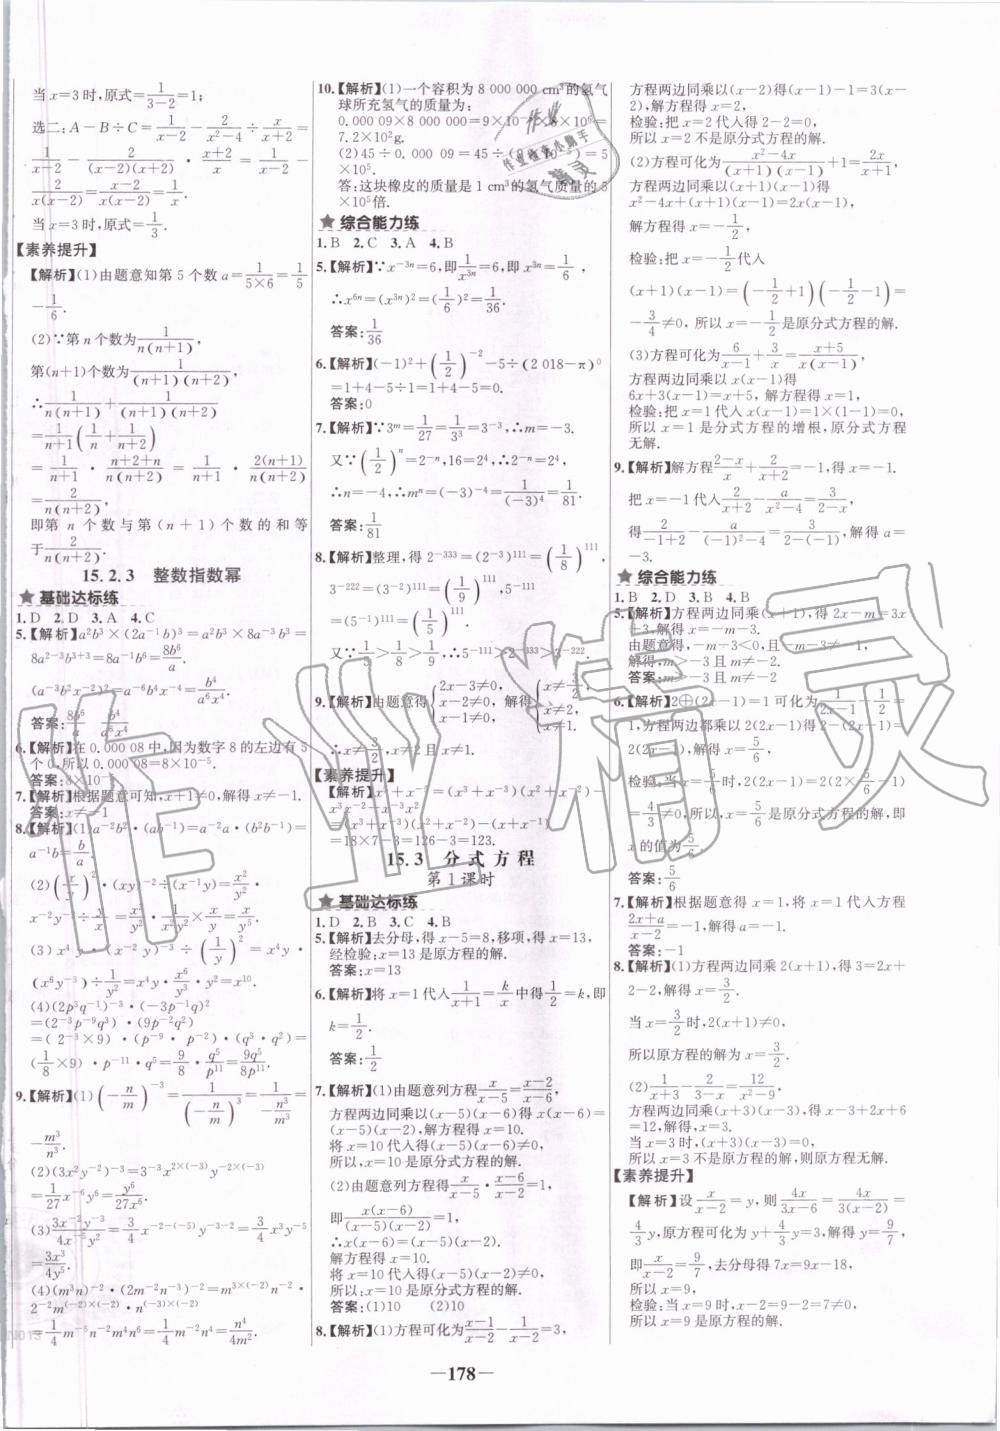 当x=3时,原式=1/(3-2)=1;
选二:A-B÷C=1/(x-2)-2/(x²-4)÷x/(x+2)=
1/(x-2)-2/((x-2)(x+2))·(x+2)/x=1/(x-2)-
2/(x(x-2))=(x-2)/(x(x-2))=1/x.
当x=3时,原式=1/3.
【素养提升】
【解析】(1)由题意知第5个数a=1/(5×6)=1/5
-1/6.
(2)∵第n个数为1/(n(n+1)),
第(n+1)个数为1/((n+1)(n+2)),
∴1/(n(n+1))+1/((n+1)(n+2))
=1/(n+1)(1/n+1/(n+2))
=1/(n+1)·(n+2+n)/(n(n+2))=1/(n+1)·2(n+1)/(n(n+2))
=2/(n(n+2)),
即第n个数与第(n+1)个数的和等
于2/(n(n+2)).
15.2.3 整数指数幂
★基础达标练
1.D 2.D 3.A 4.C
5.【解析】a²b³×(2a⁻¹b)³=a²b³×8a⁻³b³=
8a²⁻³b³⁺³=8a⁻¹b⁶=8b⁶/a.
(a⁻³b²x⁻²)²=a⁻⁶b⁴x⁻⁴=b⁴/(a⁶x⁴).
答案:8b⁶/a b⁴/(a⁶x⁴)
6.【解析】在0.000 08中,因为数字8的左边有5
个0,所以0.000 08=8×10⁻⁵.
答案:8×10⁻⁵
7.【解析】根据题意可知,x+1≠0,解得x≠-1.
答案:x≠-1
8.【解析】(1)a⁻²b²·(ab⁻¹)=a⁻²a·(b²b⁻¹)=
a⁻¹b=b/a.
(2)(x/y)²·(xy)⁻²÷
x⁻²y⁻²
(3)x⁴y·x⁻²y⁻³÷(1/y)²=x⁴y·
(x⁶y⁻³)÷
(4)(2p³q⁻¹)·(-3p⁻¹q)²
=(2⁻³p⁻⁹q³)·(9p⁻²q²)
=(2⁻³×9)·(p⁻⁹·p⁻²)·(q³·q²)=
(1/8×9)·p⁻¹¹·q⁵=9/8·q⁵/p¹¹=9q⁵/8p¹¹.
9.【解析】(1)(-n/m)⁻³=1/(-n/m)³=1/(-n³/m³)=
-m³/n³.
(2)(3x²y⁻²)⁻³=3⁻³x²ˣ⁽⁻³⁾y⁽⁻²⁾ˣ⁽⁻³⁾=
1/27x⁻⁶y⁶=y⁶/27x⁶.
(3)3x⁻²y⁻³/4x⁻⁵y²=3/4x⁻²⁻⁽⁻⁵⁾y⁻³⁻²=3/4x³y⁻⁵
=3x³/4y⁵.
(4)(m³n)⁻²·(2m⁻²n⁻³)⁻²=m³ˣ⁽⁻²⁾n⁻²·
2⁻²m⁽⁻²⁾ˣ⁽⁻²⁾n⁽⁻³⁾ˣ⁽⁻²⁾
=1/4m⁻⁶n⁻²m⁴n⁶=1/4m⁻²n⁴=n⁴/4m².
10.【解析】(1)一个容积为8 000 000 cm³的氢气
球所充氢气的质量为:
0.000 09×8 000 000=9×10⁻⁵×8×10⁶=
7.2×10²g.
(2)45÷0.000 09=45÷(9×10⁻⁵)=5
×10⁵.
答:这块橡皮的质量是1 cm³的氢气质量的5
×10⁵倍.
★综合能力练
1.B 2.C 3.A 4.B
5.【解析】∵x⁻³ⁿ=6,即1/x³ⁿ=6,即x³ⁿ=1/6,
∴x⁶ⁿ=(x³ⁿ)²=(1/6)²=1/36.
答案:1/36
6.【解析】(-1)²+(1/2)⁻²-5÷(2 018-π)⁰
=1+4-5÷1=1+4-5=0.
答案:0
7.【解析】∵3ᵐ=1/27=1/3³=3⁻³,∴m=-3.
又∵(1/2)ⁿ=2⁻ⁿ,16=2⁴,∴2⁻ⁿ=2⁴,
∴n=-4,∴mⁿ=(-3)⁻⁴=1/(-3)⁴=1/81.
答案:1/81
8.【解析】整理,得2⁻³³³=(2⁻³)¹¹¹=(1/8)¹¹¹,
3⁻²²²=(3⁻²)¹¹¹=(1/9)¹¹¹,
=(5⁻¹)¹¹¹=(1/5)¹¹¹.
又∵1/5>1/8>1/9,∴5⁻¹¹¹>2⁻³³³>3⁻²²².
9.【解析】由题意得{2x-3≠0,x-2≠0,x-1≠0,解得{x≠3/2,x≠2,x≠1,
∴x≠3/2,x≠2且x≠1.
【素养提升】
【解析】x⁷+x⁻⁷=(x³+x⁻³)(x⁴+x⁻⁴)-
x³x⁻⁴-x⁴x⁻³
=(x³+x⁻³)(x⁴+x⁻⁴)-(x+x⁻¹)
=18×7-3=126-3=123.
15.3 分式方程
第1课时
★基础达标练
1.D 2.B 3.C 4.B
5.【解析】去分母,得x-5=8,移项,得x=13,
经检验:x=13是原方程的解.
答案:x=13
6.【解析】将x=1代入1/(x+1)=k/x中得1/2=k,即
k=1/2.
答案:1/2
7.【解析】(1)由题意列方程x/(x-5)=(x-2)/(x-6),
方程两边同乘以(x-5)(x-6)得x(x-6)=
(x-5)(x-2),解方程得x=10.
将x=10代入得(x-5)(x-6)≠0.
所以,x=10是原分式方程的解.
(2)由题意列方程得x/(x-5)·(x-6)/(x-2)=1,
即x(x-6)/((x-5)(x-2))=1,
∴x(x-6)=(x-5)(x-2).
解方程得x=10.
将x=10代入得(x-5)(x-2)≠0,
所以,x=10是原分式方程的解.
答案:(1)10 (2)10
8.【解析】(1)方程可化为(x-1)/(x-2)-1/(x-2)=3,
方程两边同乘以(x-2)得(x-1)-1=3(x-
2),解方程得x=2,
检验:把x=2代入得2-2=0,
所以x=2不是原分式方程的解.
(2)方程可化为(x²-4x)/((x+1)(x-1))+1=2x/(x+1),
方程两边同乘以(x+1)(x-1)得
x²-4x+(x+1)(x-1)=2x(x-1),
解方程得x=-1/2,
检验:把x=-1/2代入
(x+1)(x-1)=(-1/2+1)(-1/2-1)=
-3/4≠0,所以x=-1/2是原分式方程的解.
(3)方程可化为6/(x-1)+3/x=(x+5)/(x(x-1)),
方程两边同乘以x(x-1)得
6x+3(x-1)=x+5,解方程得x=1,
检验:把x=1代入x(x-1)=1×(1-1)=0,
所以x=1是分式方程的增根,原分式方程
无解.
9.【解析】解方程(2-x)/x+2/(x+2)=-1,得x=-1.
把x=-1代入2/(x+2)-a/(x-2)=3/(2-x),
得2/(-1+2)-a/(-1-2)=3/(2-(-1)),解得a=
-3.
★综合能力练
1.B 2.D 3.B 4.B
5.【解析】方程两边同乘(x+1),得2x-m=3x
+3,解得x=-m-3.
由题意,得-m-3<0且-m-3≠-1,
解得:m>-3且m≠-2.
答案:m>-3且m≠-2
6.【解析】2⊕(2x-1)=1可化为1/(2x-1)-1/2=
1,方程两边都乘以2(2x-1)得2-(2x-1)=
2(2x-1),解得x=5/6,
检验,当x=5/6时,2(2x-1)=2(2×5/6-1)
=4/3≠0,所以,x=5/6是原分式方程的解,即
x的值为5/6.
答案:5/6
7.【解析】根据题意得x=1,将x=1代入方程
(2x+a)/(x-2)=-1,解得a=-1.
答案:-1
8.【解析】(1)方程两边同乘2(x+1),得3=2x
+2-2,解得x=3/2.
当x=3/2时,2(x+1)≠0,
所以原方程的解为x=3/2.
(2)1/(x+3)-2/(3-x)=12/(x²-9),
方程两边同乘(x+3)(x-3),得x-3+2x+6
=12,解得x=3.
当x=3时,(x+3)(x-3)=0,
所以x=3不是原方程的解,则原方程无解.
【素养提升】
【解析】设x/(x-2)=y,则4x/(3x-6)=4x/(3(x-2))=
4/3y,原方程可化为y+4/3y=3,解得y=9/7,
即x/(x-2)=9/7,去分母得7x=9x-18,
所以x=9,
检验:当x=9时,x-2=9-2=7≠0,
所以x=9是原方程的解.
—178—
作业精灵